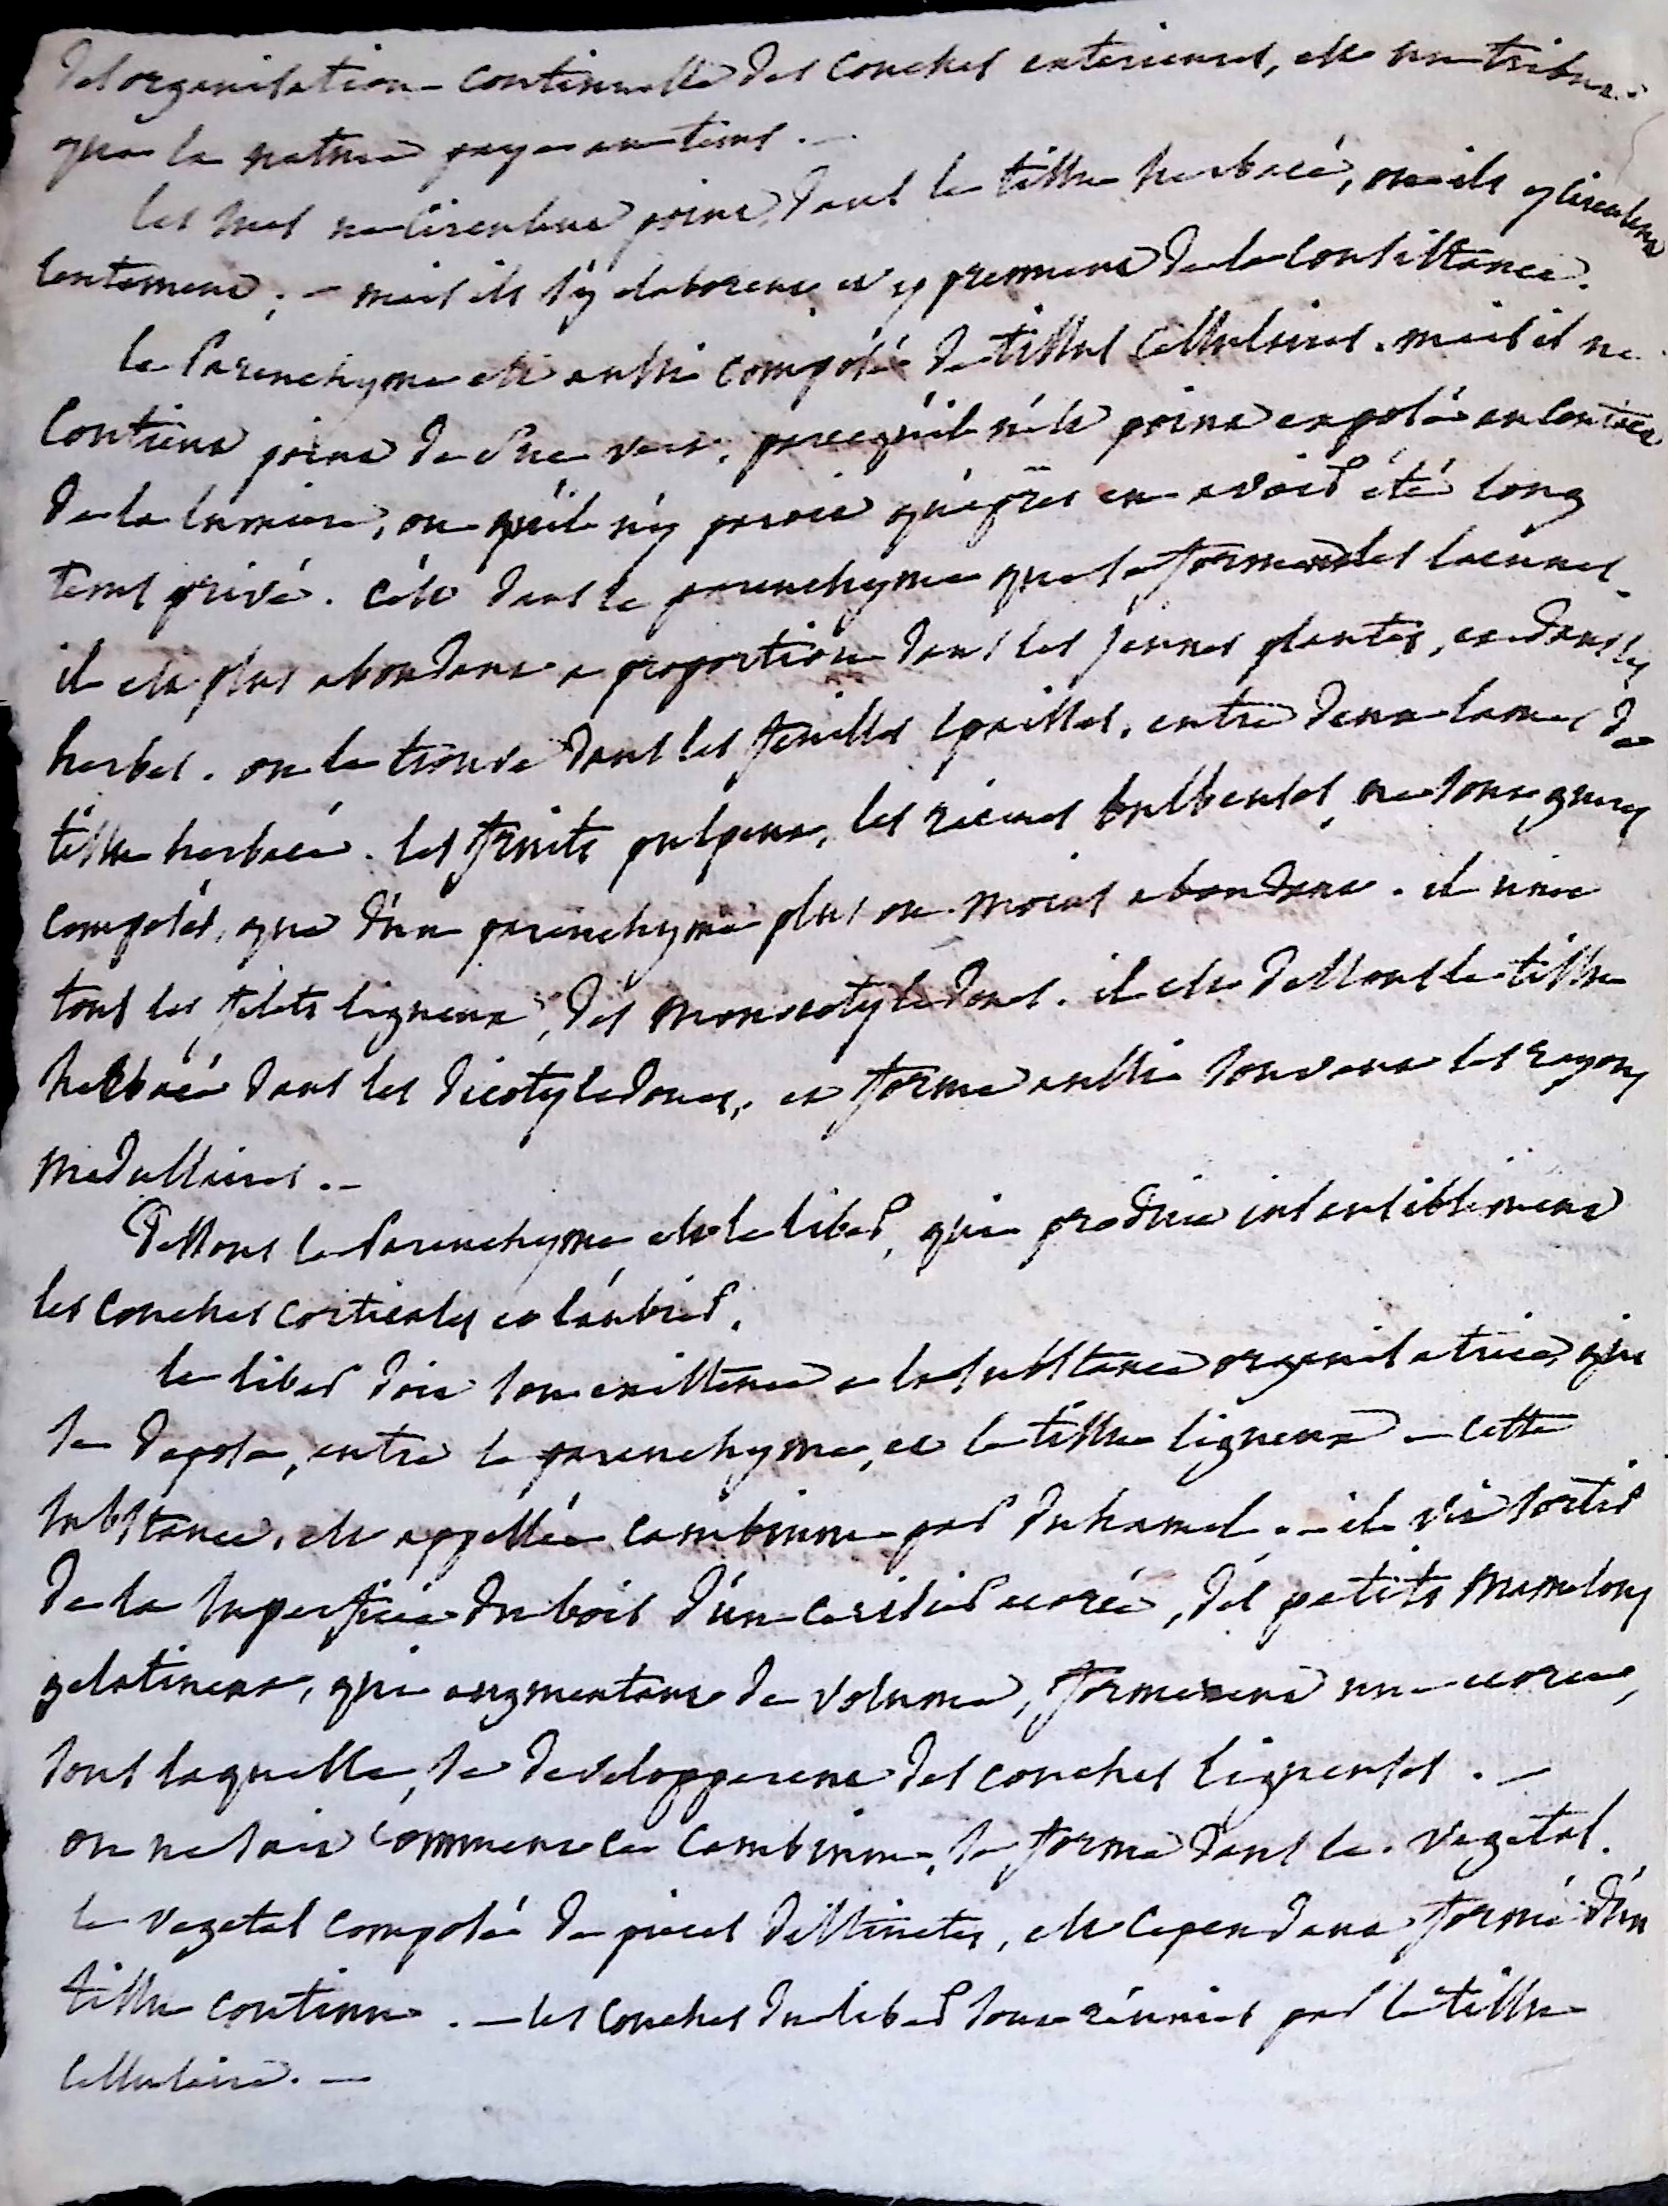 desorganisation continuelle des couches exterieures, est un tribut
que la nature paye au tems. —
les sucs ne circulent point dans le tissu herbacé, ou ils y circulent
lentement; — mais ils s'y elaborent, et y prennent de la consistance.
le Parenchyme est aussi composé de tissus cellulaires. mais il ne
contient point de suc vert, parcequ'il n'est point exposé au contact
de la lumiere, ou qu'il n'y paroit qu'après en avoir été long
tems privé. c'est dans le parenchyme que se forment les lacunes.
il est plus abondant a proportion dans les jeunes plantes, et dans les
herbes. on le trouve dans les feuilles epaisses, entre deux lames de
tissu herbacé. les fruits pulpeux, les racines bulbeuses, ne sont gueres
composés, que d'un parenchyme plus ou moins abondant. il unit
tous les filets ligneux, des monocotyledones. il est dessous le tissu
herbacé dans les dicotyledones, et forme aussi souvent les rayons
medullaires. —
Dessous le Parenchyme est le liber, qui produit insensiblement
les couches corticales et l'aubier.
le liber doit son existence a la substance organisatrice, qui
se depose, entre le parenchyme, et le tissu ligneux — cette
substance, est appellée cambium par duhamel. — il vit sortir
de la superficie du bois d'un cerisier ecorcé, des petits mamelons
gelatineux, qui augmentant de volume, formerent une ecorce,
sous laquelle, se developperent des couches ligneuses. —
on ne sait comment ce cambium, se forme dans le vegetal.
le vegetal composé de pieces distinctes, est cependant formé d'un
tissu continu. — les couches du liber sont réunies par le tissu
cellulaire. —